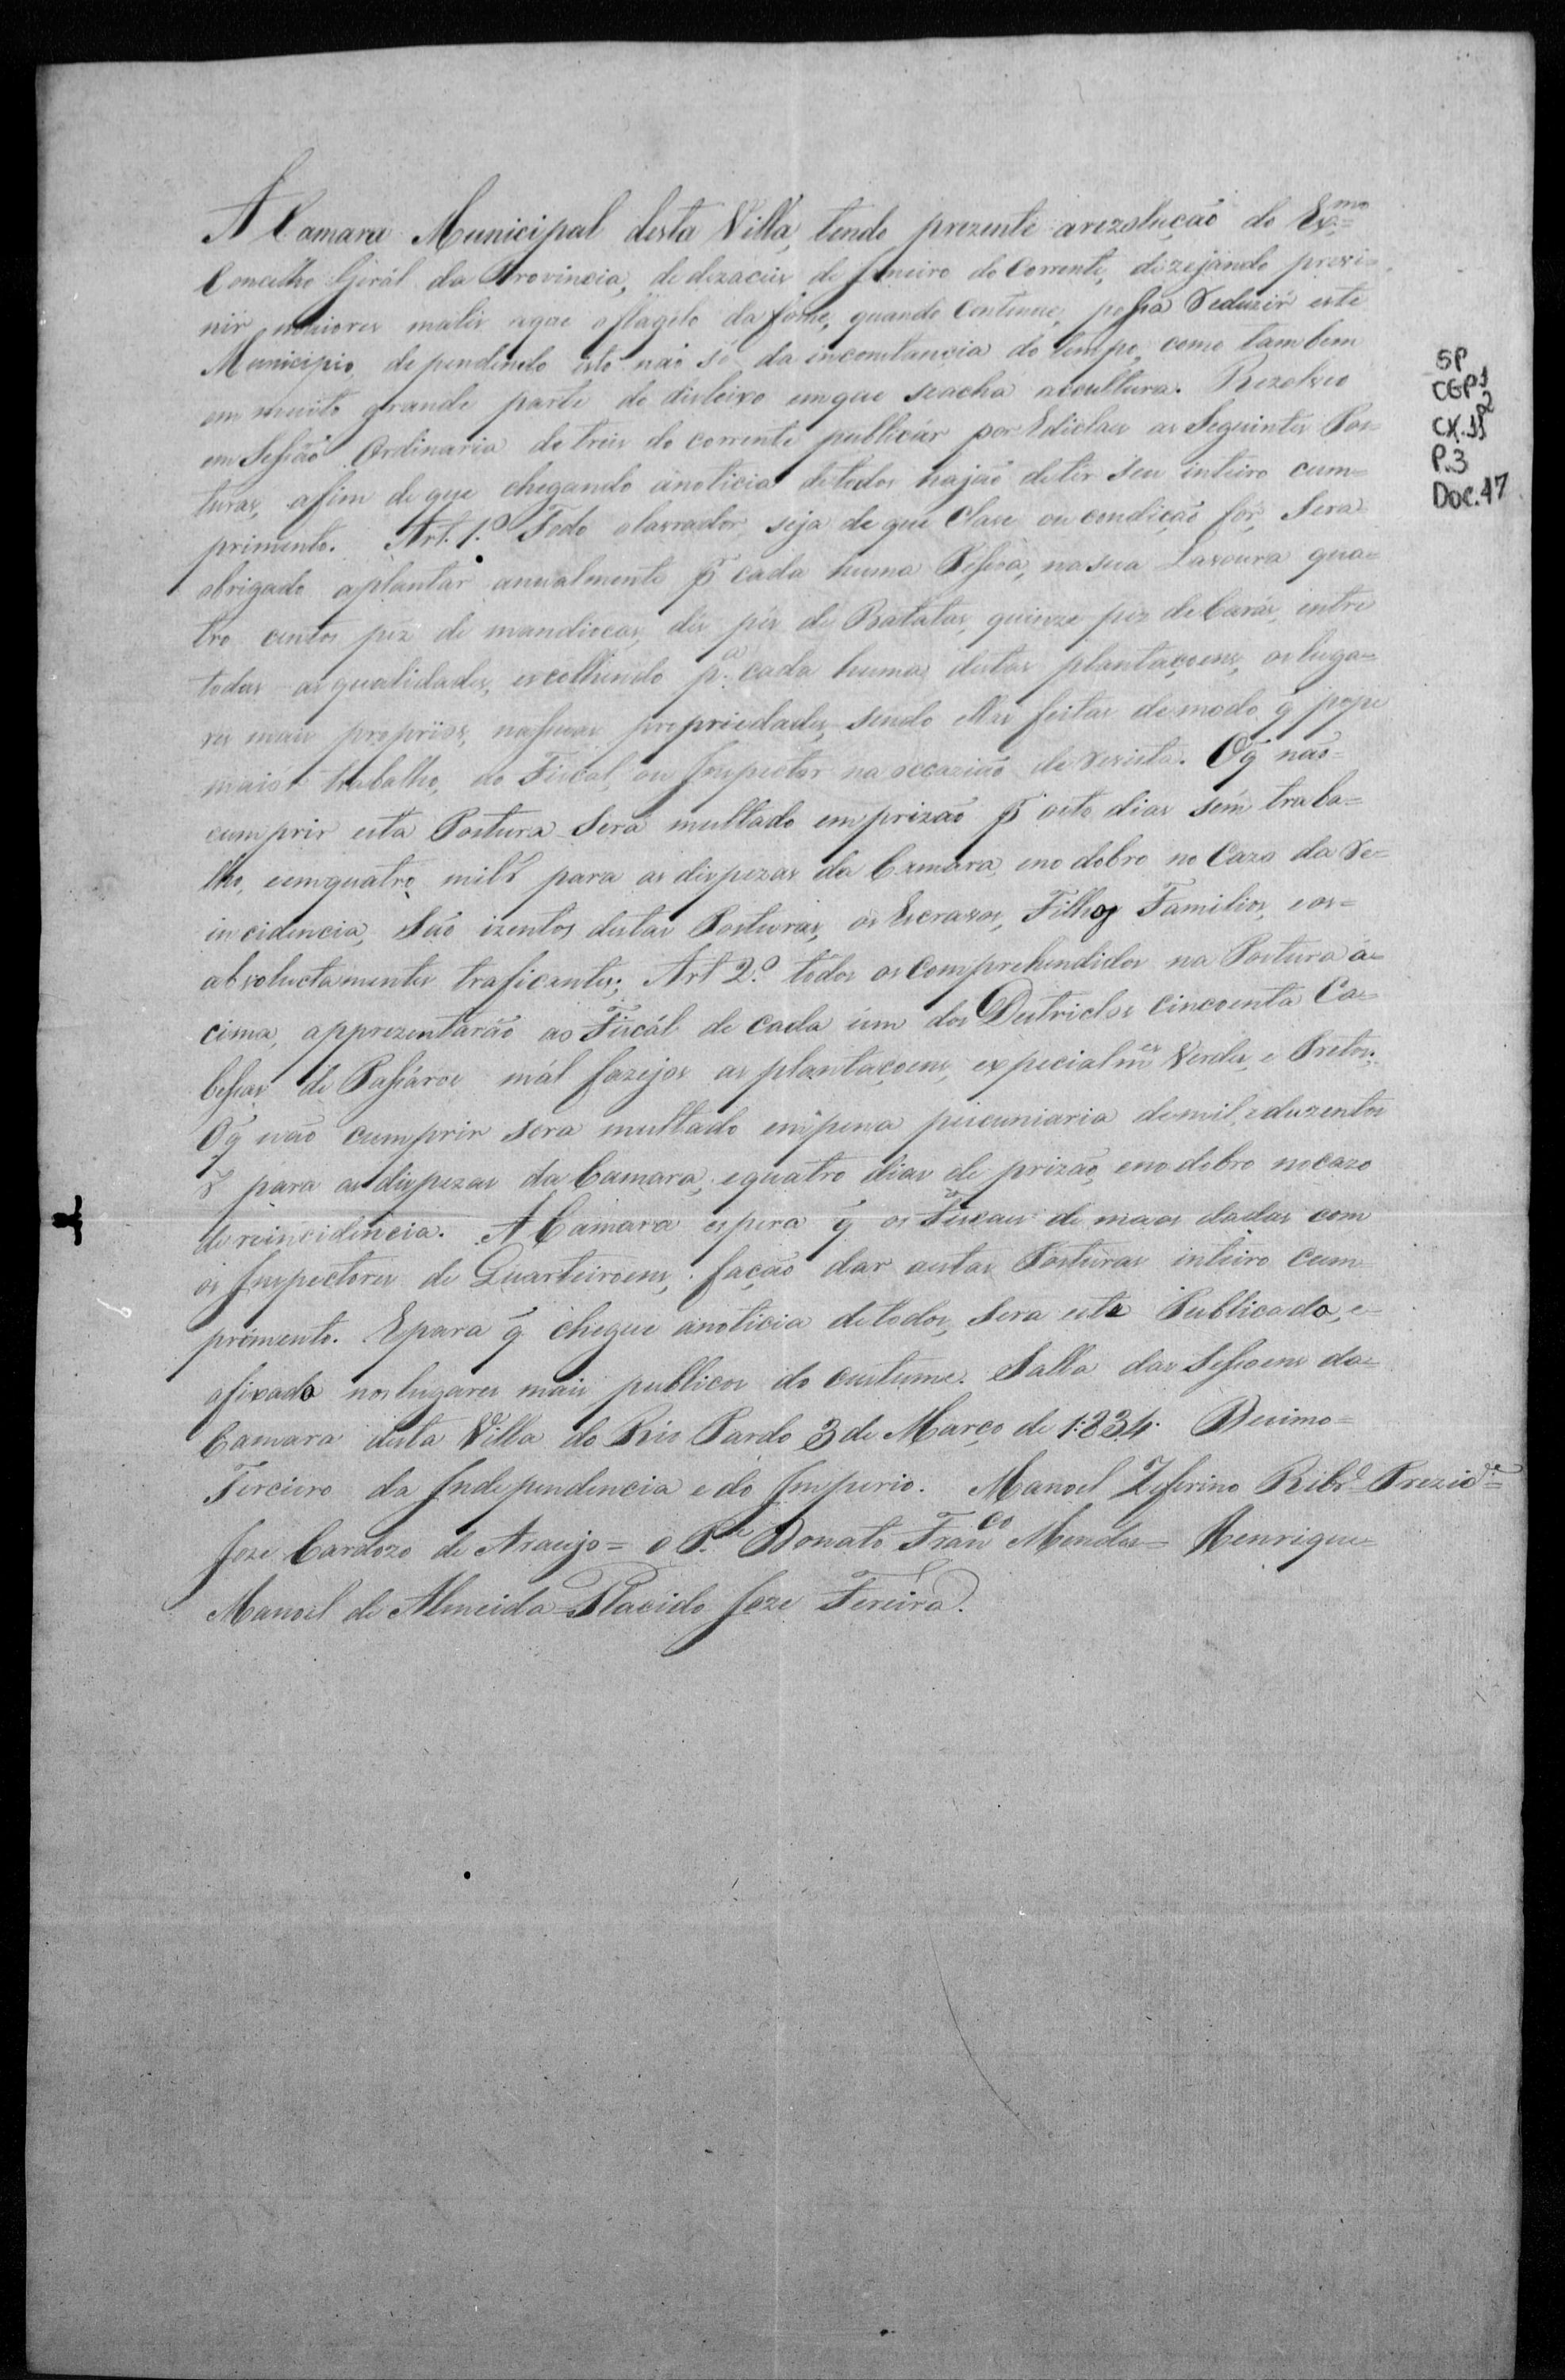 A Camara Municipal desta Villa, tendo prezente arezolução do Ex.mo
Concelho Gerál da Provincia, de dezaceis de Janeiro do Corrente, dezejando previ=
nir maiores malis aque oflagélo da fome, quando Continue, possa reduzir este
Municipio, dependendo isto não só da inconstancia do tempo, como tambem
em muito grande parte do disleixo emque seacha acultura. Rezolveo
em Sessão Ordinaria de tres do corrente publicár por Edictaes as Seguintes Pos=
turas, afim de que chegando ánoticia detodos hajão detér seu inteiro cum=
primento. Art. 1.º Todo olavrador, seja de que Clace ou condição fôr, Sera
obrigado aplantar anualmente p cada huma Pessoa, nasua Lavoura qua=
tro centos péz de mandiocas, dés pés de Batatas, quinze péz de Carás, entre
todas as qualidades, escolhendo p.a cada huma destas plantaçoens, os luga=
res mais proprios, nassuas propriedades, sendo ellas feitas demodo q̃ pope
mais trabalho, ao Fiscal, ou Inspector na occazião de vezista. Oq̃ não
cumprir esta Postura Será multado em prizão p oito dias sem traba=
lho, eemquatro mil r para as dispezas da Camara, eno dobro no Cazo da re=
incidencia, São izentos destas Posturas, os Escravos, Filhos Familios, eos=
absoluctamentes traficantes; Art 2.º todos os Comprehendidos na Postura á=
cima, apprezentarão ao Fiscál de cada úm dos Destrictos cincoenta Ca=
bessas de Passáros mál fazejos as plantaçoens, expecialm.es Verdes, e Pretos;
Oq̃ não cumprir sera multado em pena pecuniaria demil, eduzentos
r para as dispezas da Camara, equatro dias de prizão, eno dobro nocazo
dereincidencia. A Camara espera q̃ os Fiscaes de maos dadas com
os Inspectores de Quarteiroens, fação dar aestas Posturas inteiro cum
primento. Epara q̃ chegue anoticia detodos, Sera esta Publicada, e
afixada noslugares mais publicos do custume. Salla das Sessoens da=
Camara desta Villa do Rio Pardo 3 de Março de 1:834. Desimo=
Terceiro da Independencia e do Imperio. Manoel Zeferino Ribr.o Prezid.e=
Joze Cardozo de Araujo= o P.e Donato Fran.co Mendes= Henrique
Manoel de Almeida= Placido Joze Fereira.
SP
CGP1
CX.112
P.3
Doc.47